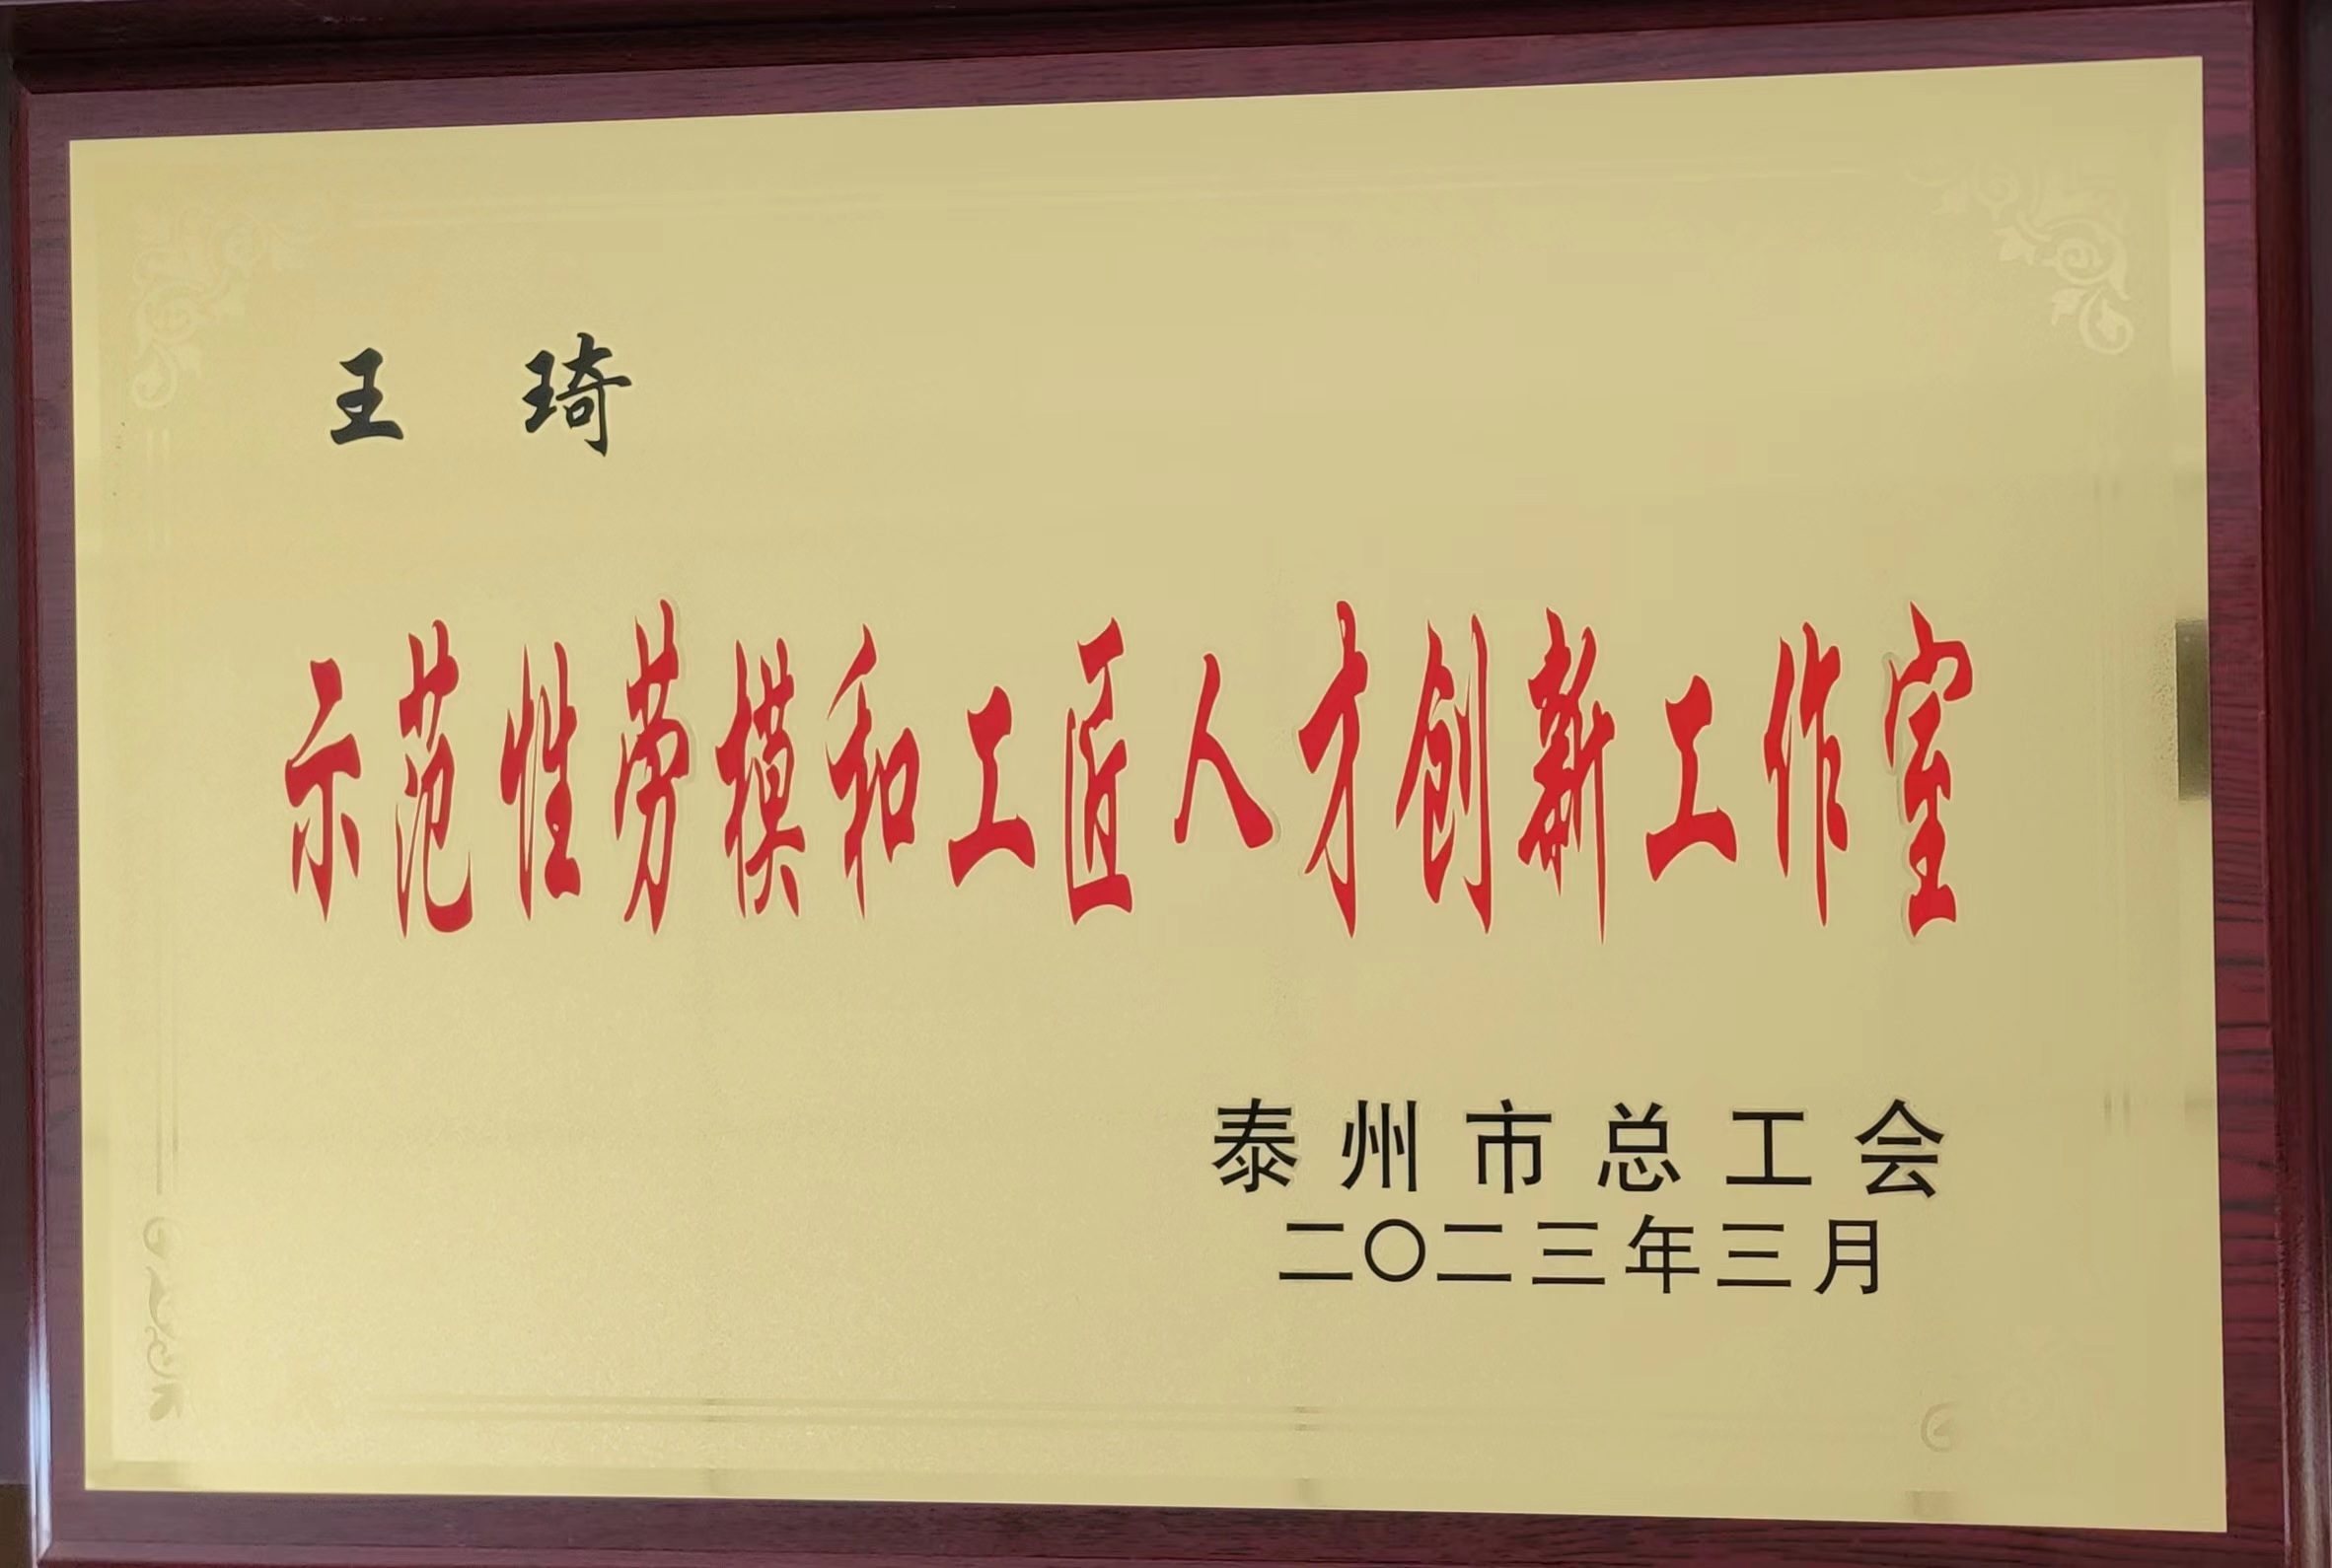 王 琦
示范性劳模和工匠人才创新工作室
泰州市总工会
二〇二三年三月